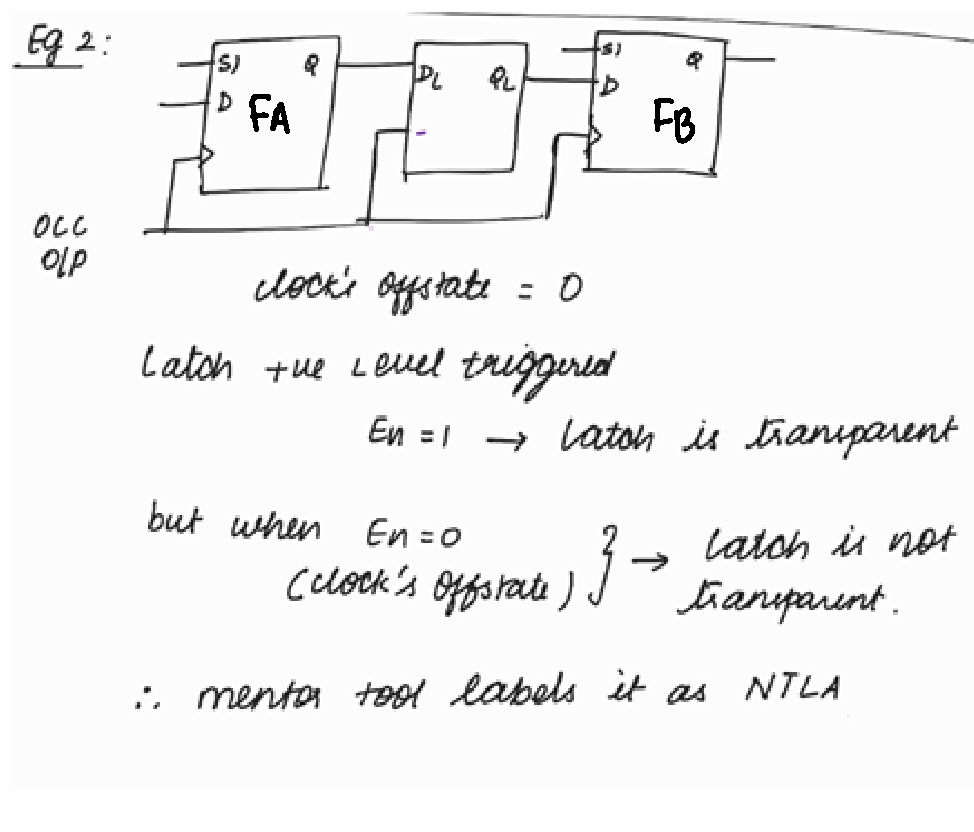 Eg 2:
SI Q
D
FA
DL QL
SI Q
D
FB
OCC
O/P
clock's offstate = 0
Latch +ve Level triggered
En = 1 → latch is transparent
but when En = 0
(clock's offstate) } → latch is not
transparent.
∴ mentor tool labels it as NTLA